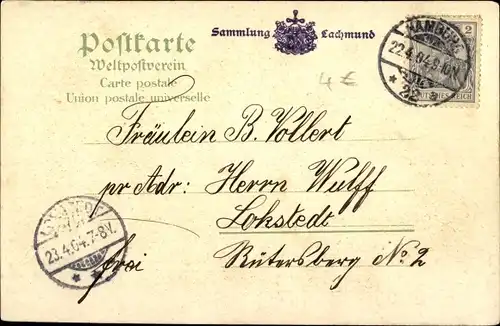 Sammlung Lachmund
Postkarte
Weltpostverein
Carte postale
Union postale universelle
4 €
HAMBURG
22.4.04.9-10V.
22
2
DEUTSCHES REICH
Fräulein B. Vollert
pr Adr: Herrn Wulff
Lokstedt
Rütersberg No. 2
frei
LOKSTEDT
23.4.04.7-8V.